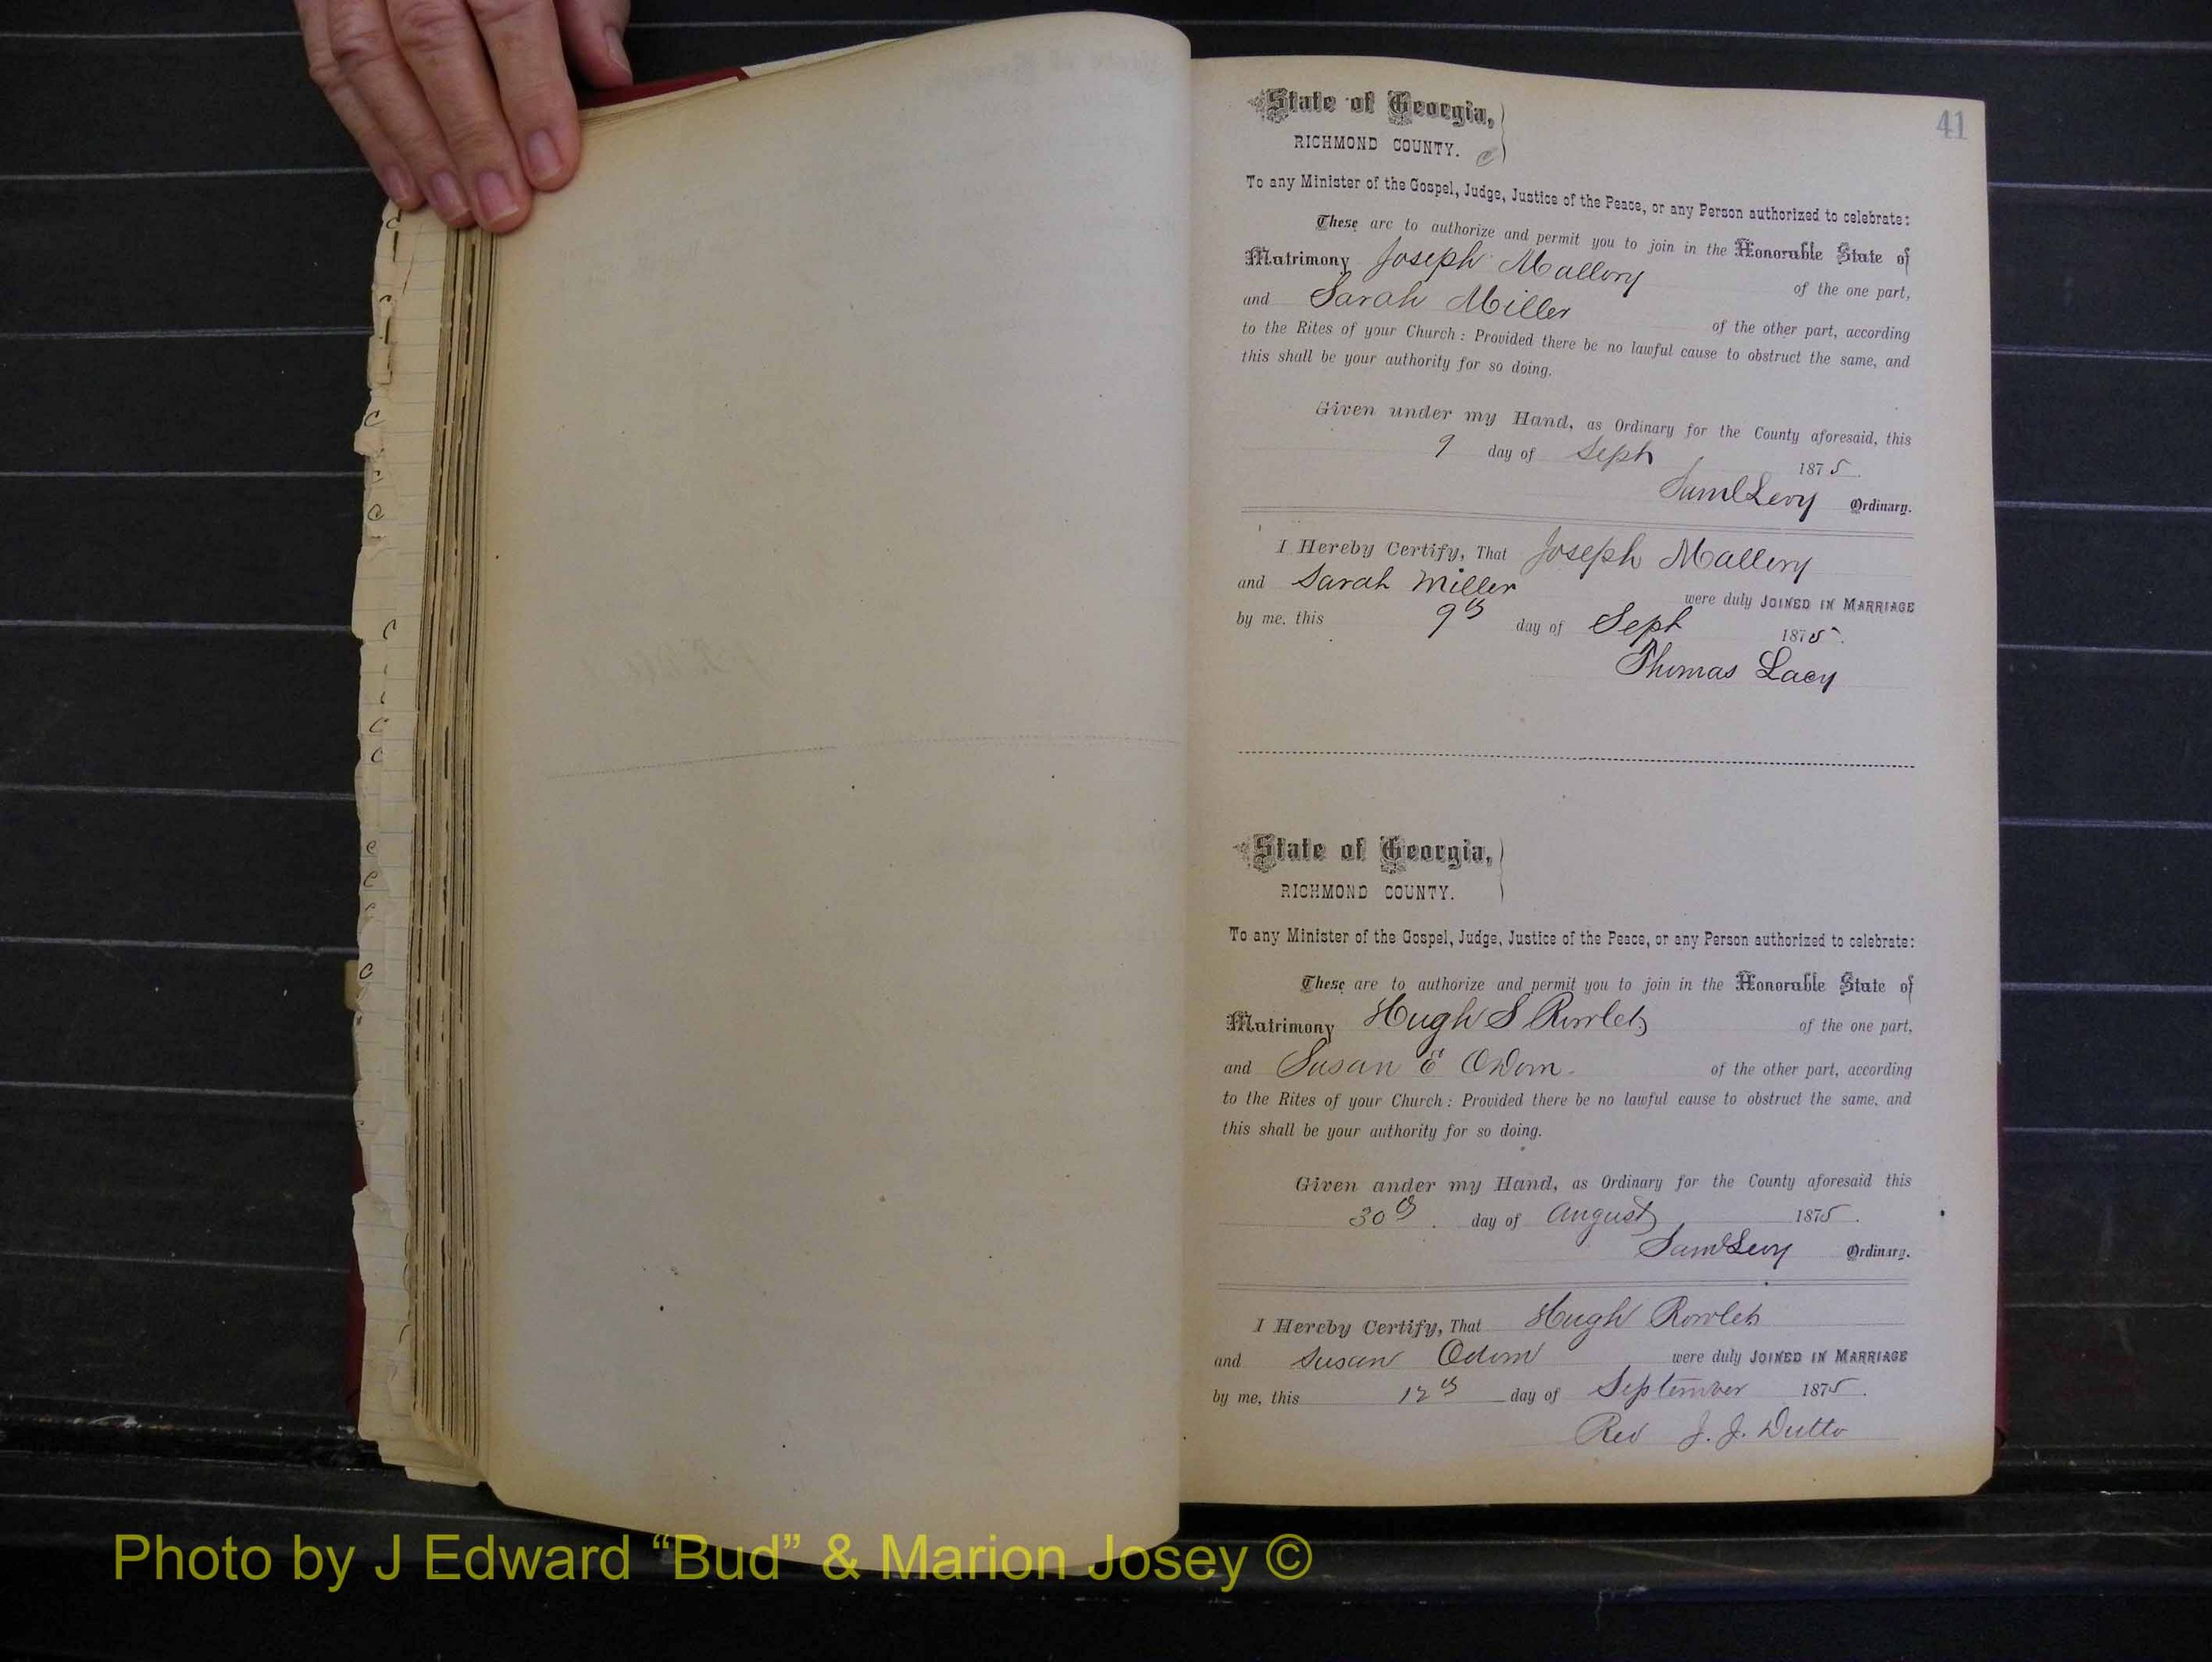 41
State of Georgia,
RICHMOND COUNTY. C
To any Minister of the Gospel, Judge, Justice of the Peace, or any Person authorized to celebrate:
These are to authorize and permit you to join in the Honorable State of
Matrimony Joseph Mallory of the one part,
and Sarah Miller of the other part, according
to the Rites of your Church: Provided there be no lawful cause to obstruct the same, and
this shall be your authority for so doing.
Given under my Hand, as Ordinary for the County aforesaid, this
9 day of Sept 1875.
Saml Levy Ordinary.
I Hereby Certify, That Joseph Mallery
and Sarah Miller were duly JOINED IN MARRIAGE
by me, this 9th day of Sept 1875.
Thomas Lacy
State of Georgia,
RICHMOND COUNTY.
To any Minister of the Gospel, Judge, Justice of the Peace, or any Person authorized to celebrate:
These are to authorize and permit you to join in the Honorable State of
Matrimony Hugh S Rowlet of the one part,
and Susan E Odom of the other part, according
to the Rites of your Church: Provided there be no lawful cause to obstruct the same, and
this shall be your authority for so doing.
Given under my Hand, as Ordinary for the County aforesaid this
30th day of August 1875.
Saml Levy Ordinary.
I Hereby Certify, That Hugh Rowlet
and Susan Odom were duly JOINED IN MARRIAGE
by me, this 12th day of September 1875.
Rev J. J.
Photo by J Edward “Bud” & Marion Josey ©